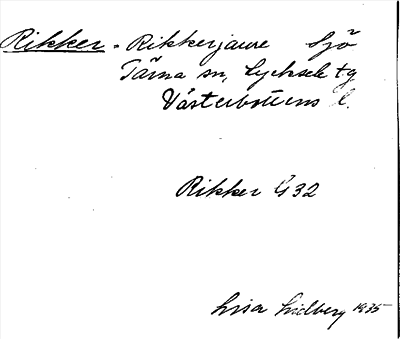 Rikker - Rikkerjaure Sjö
Tärna sn, Lycksele tg
Västerbottens l.
Rikker G 32
Lisa Lidberg 1935